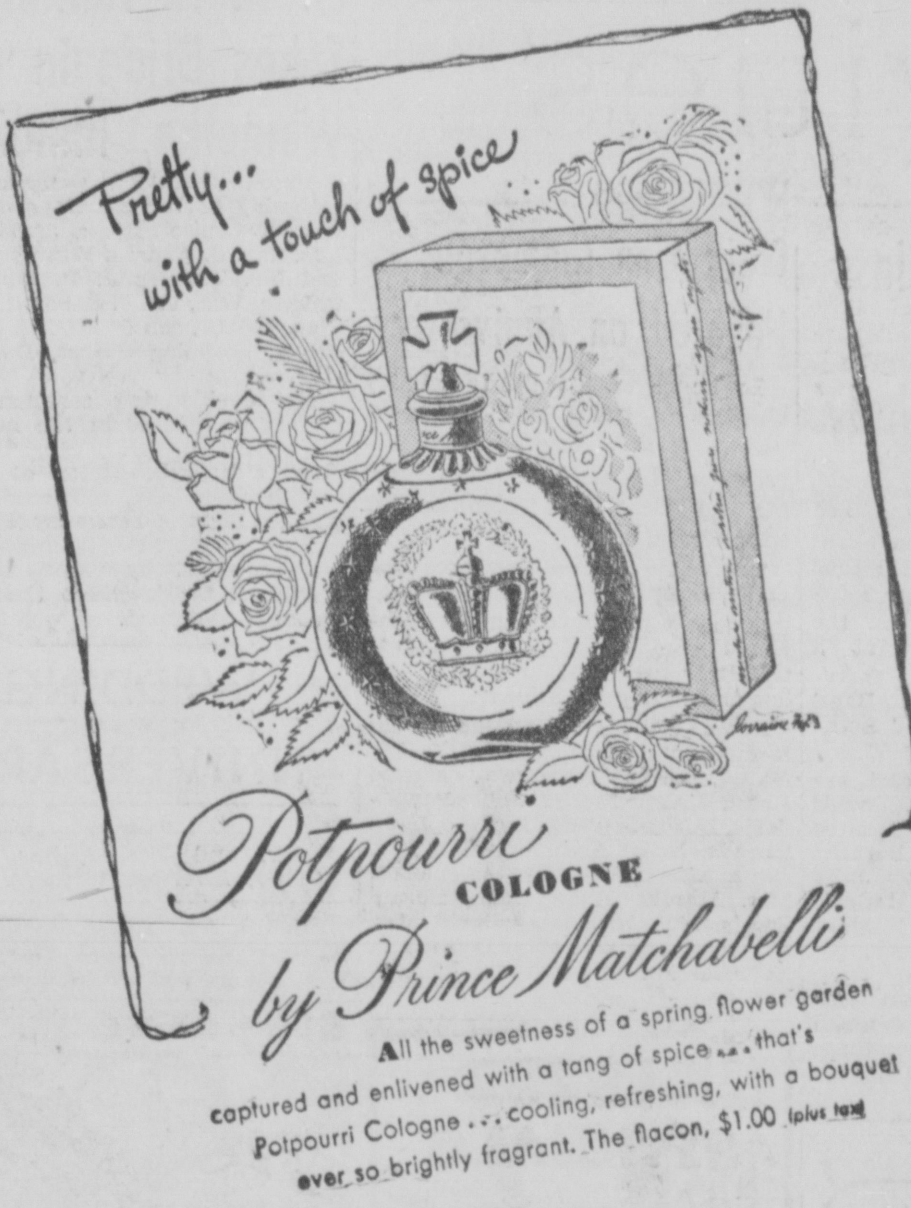 Pretty...
with a touch of spice
Potpourri
COLOGNE
by Prince Matchabelli
All the sweetness of a spring flower garden
captured and enlivened with a tang of spice ... that's
Potpourri Cologne ... cooling, refreshing, with a bouquet
ever so brightly fragrant. The flacon, $1.00 (plus tax)